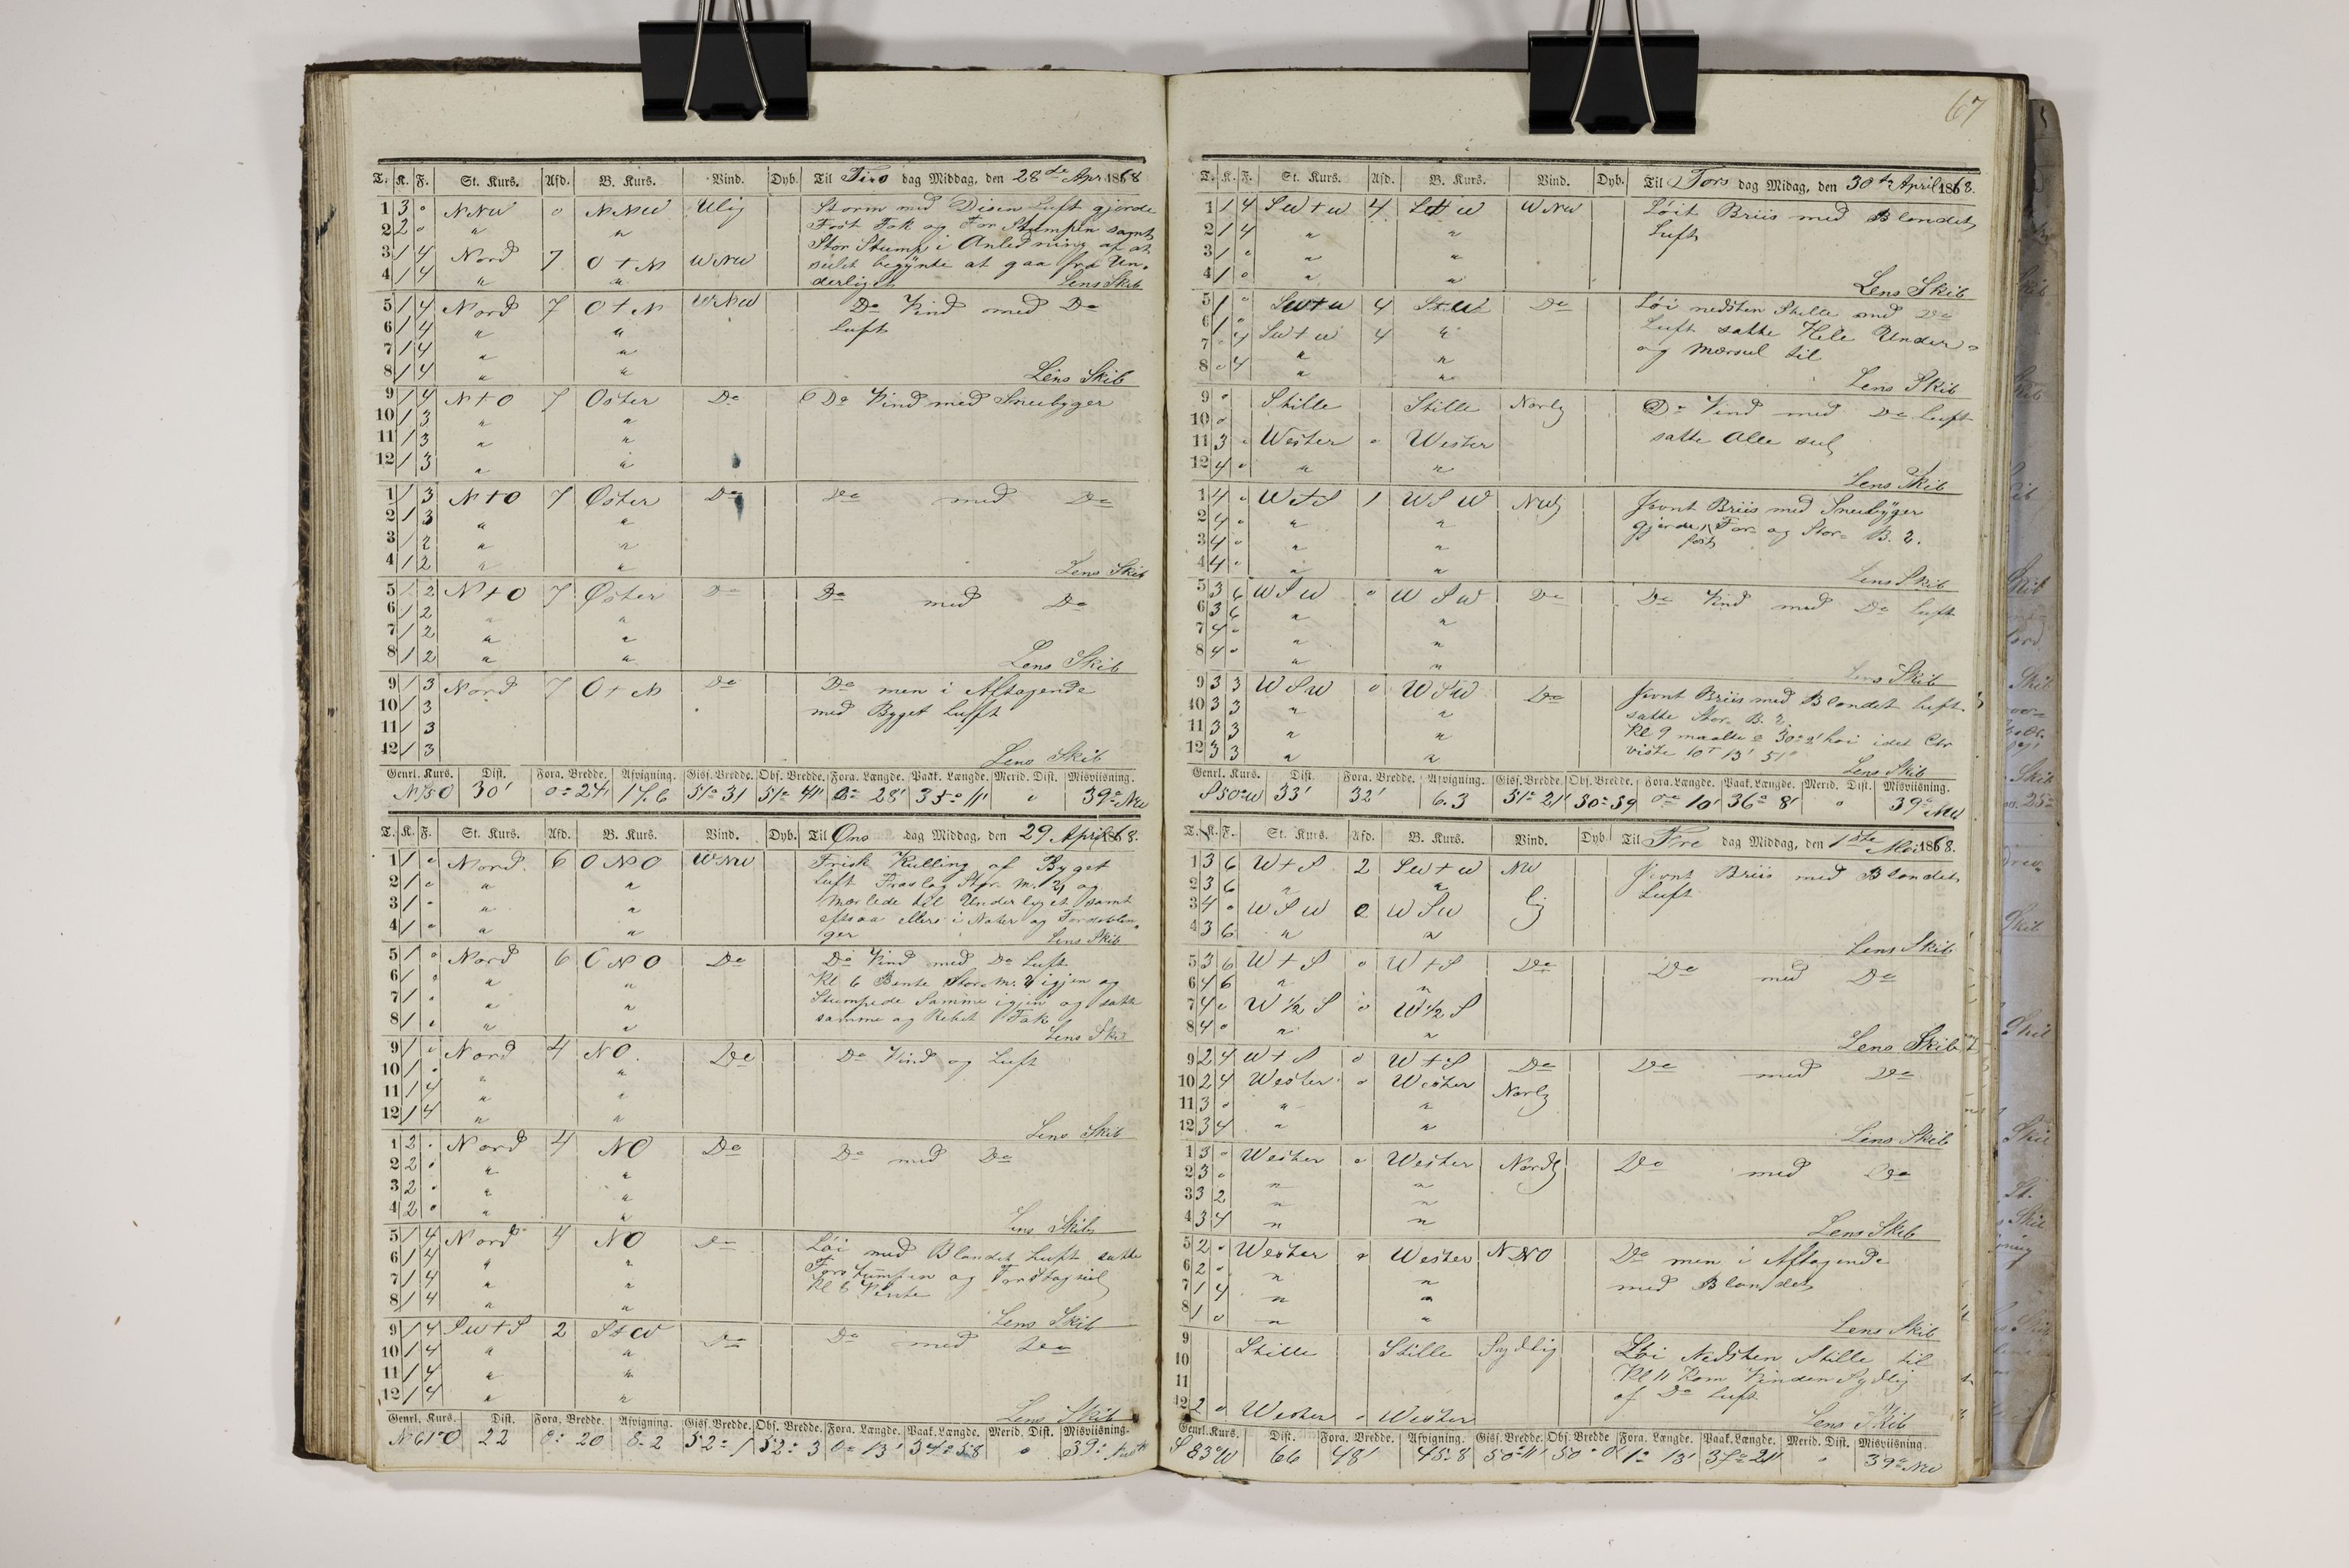 67
T. K. F. St. Kurs. Afd. B. Kurs. Vind. Dyb. Til Tirs dag Middag, den 28de Apr 1868
1 3 o NNW o NNW Ulig Storm med Disen Luft gjorde
2 2 o " " Fast Fok og For Stumpen samt
3 1 4 Nord 7 O+N WNW Stor Stump i Anledning af at
4 1 4 " " seilet begynte at gaa fra Un-
derliget Lens Skib
5 1 4 Nord 7 O+N WNW Do Vind med Do
6 1 4 " " Luft
7 1 4 " "
8 1 4 " " Lens Skib
9 1 4 N+O 7 Oster Do Do Vind med Sneebyger
10 1 3 " "
11 1 3 " "
12 1 3 " "
1 1 3 N+O 7 Øster Do Do med Do
2 1 3 " "
3 1 2 " "
4 1 2 " " Lens Skib
5 1 2 N+O 7 Øster Do Do med Do
6 1 2 " "
7 1 2 " "
8 1 2 " " Lens Skib
9 1 3 Nord 7 O+N Do Do men i Aftagende
10 1 3 med Byget Luft
11 1 3
12 1 3 Lens Skib
Genrl. Kurs. Dist. Fora. Bredde. Afvigning. Gisf. Bredde. Obs. Bredde. Fora. Længde. Paak. Længde. Merid. Dist. Misviisning.
30' 0° 24' 17.6 51° 31 51° 41' 0° 28' 35° 11' " 39° NW
T. K. F. St. Kurs. Afd. B. Kurs. Vind. Dyb. Til Ons dag Middag, den 29. April 1868.
1 1 o Nord 6 ONO WNW Frisk Kulling af Byget
2 1 o " " Luft Fraslog Stor. M. 2 og
3 1 o " " Mærlede til Underliget samt
4 1 o " " eftsaa ellers i Nater og Fordoblin-
ger Lens Skib
5 1 o Nord 6 ONO Do Do Vind med Do Luft
6 1 o " " Kl 6 Bente Stor. M. igjen og
7 1 o " " Stumpede Samme igjen og satte
8 1 o " " samme og Rebet Fok
Lens Skib
9 1 o Nord 4 NO Do Do Vind og Luft
10 1 o " "
11 1 4 " "
12 1 4 " " Lens Skib
1 2 o Nord 4 NO Do Do med Do
2 2 o " "
3 2 o " "
4 2 o " " Lens Skib
5 1 4 Nord 4 NO Do Løi med Blandet Luft satte
6 1 4 " " Forstumpen og Forstagseil
7 1 4 " " Kl 6 Vente
8 1 4 " " Lens Skib
9 1 4 SW+S 2 S+W Do Do med Do
10 1 4 " "
11 1 4 " "
12 1 4 " " Lens Skib
Genrl. Kurs. Dist. Fora. Bredde. Afvigning. Gisf. Bredde. Obs. Bredde. Fora. Længde. Paak. Længde. Merid. Dist. Misviisning.
N 61° O 22 0° 20 8.2 52° 1 52° 3 0° 13' 34° 58 " 39°
T. K. F. St. Kurs. Afd. B. Kurs. Vind. Dyb. Til Tors dag Midag, den 30te April 1868.
1 1 4 SW+W 4 S+W WNW Løit Briis med Blandet
2 1 4 " " Luft
3 1 o " "
4 1 o " " Lens Skib
5 1 o SW+W 4 S+W Do Løi nedsten Stille med Do
6 1 o SW+W 4 " Luft satte Hele Under-
7 o 4 " " og Mærseil til
8 o 4 " " Lens Skib
9 o Stille Stille Norlg Do Vind med Do Luft
10 o satte Alle seil
11 3 o Wester o Wester
12 4 o " " Lens Skib
1 4 o W+S 1 WSW NWlg Jevnt Briis med Sneebyger
2 4 o " " gjorde fast For- og Stor- B. 2.
3 4 o " "
4 4 o " " Lens Skib
5 3 6 WSW o WSW Do Do Vind med Do Luft
6 3 6 " "
7 4 o " "
8 4 o " " Lens Skib
9 3 3 WSW o WSW Do Jevnt Briis med Blandet Luft
10 3 3 " " satte Stor. B. 2.
11 3 3 " " Kl 9 maalte 30° 2' høi idet Ctr
12 3 3 " " viste 10T 13' 51"
Lens Skib
Genrl. Kurs. Dist. Fora. Bredde. Afvigning. Gisf. Bredde. Obs. Bredde. Fora. Længde. Paak. Længde. Merid. Dist. Misviisning.
S 50° W 33' 32' 6.3 51° 21' 30° 59 0° 10' 36° 8' " 39° NW
T. K. F. St. Kurs. Afd. B. Kurs. Vind. Dyb. Til Fre dag Middag, den 1ste Mai 1868.
1 3 6 W+S 2 SW+W NW Jevnt Briis med Blandet
2 3 6 " " lg Luft
3 4 o WSW o WSW
4 3 6 " " Lens Skib
5 3 6 W+S o W+S Do Do med Do
6 4 6 " "
7 4 o W 1/2 S o W 1/2 S
8 4 o " " Lens Skib
9 2 4 W+S o W+S Do Do med Do
10 2 4 Wester o Wester Norlg
11 3 o " "
12 3 4 " " Lens Skib
1 3 o Wester o Wester Nordlg Do med Do
2 3 o " "
3 3 2 " "
4 3 4 " " Lens Skib
5 2 o Wester o Wester NNO Do men i Aftagende
6 2 o " " med Blandet
7 1 4 " "
8 1 o " " Lens Skib
9 Stille Stille Sydlig Løi Nedsten Stille til
10 Kl 11 Kom Vinden Sydlig
11 af Do Luft
12 2 o Wester o Wester Lens Skib
Genrl. Kurs. Dist. Fora. Bredde. Afvigning. Gisf. Bredde. Obs. Bredde Fora. Længde. Paak. Længde. Merid. Dist. Misviisning.
S 83° W 66 48' 45.8 50° 11' 1° 13' 37° 21' " 39° NW